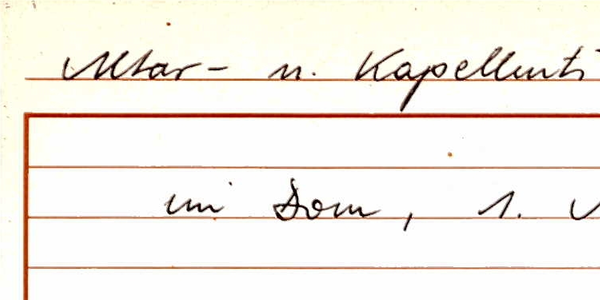 Altar- u. Kapellenti
im Dom, 1.